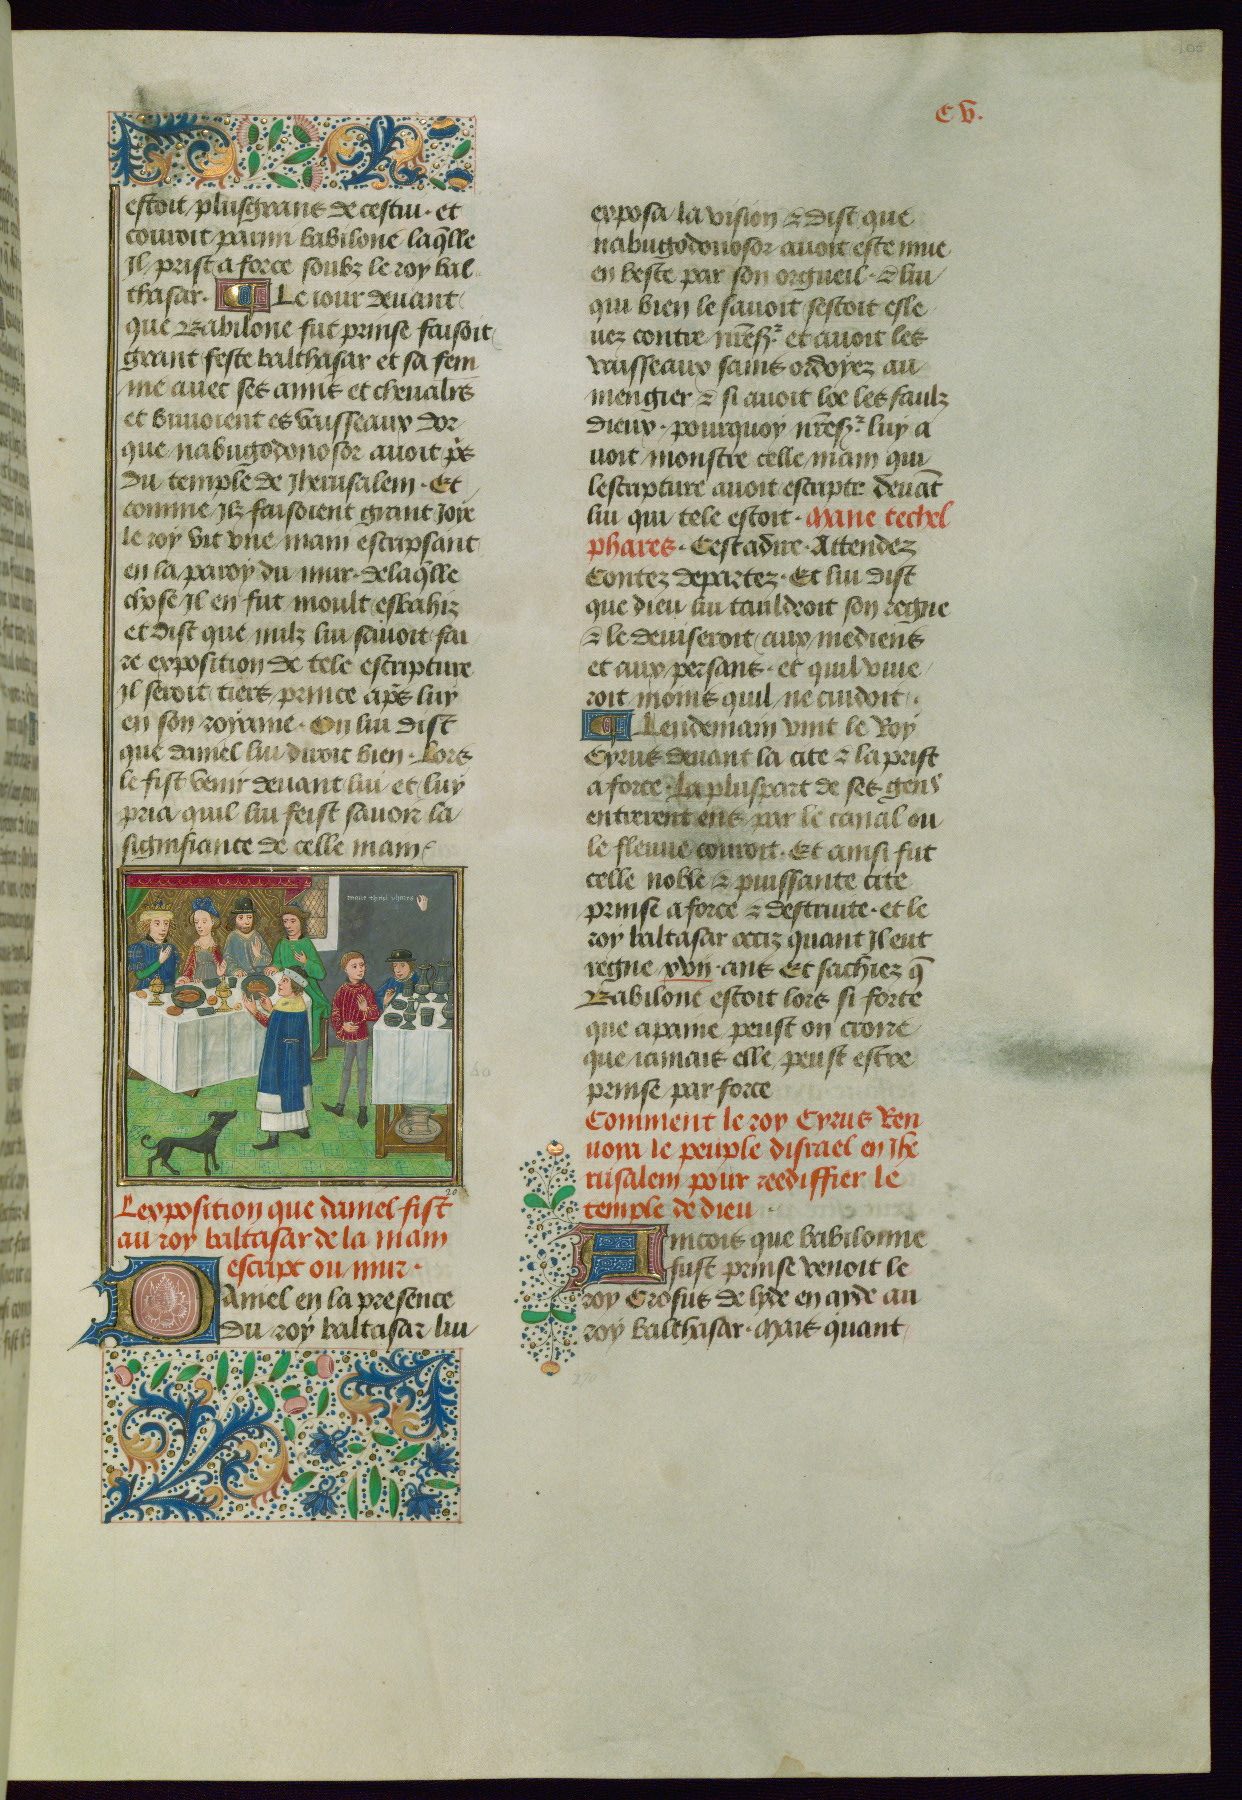 C V.
estoit plusgrans de cestui. et
couroit parmi babilone laq̄lle
Il prist a force soubz le roy bal
thasar. Le iour deuant
que Babilone fut prinse faisoit
grant feste balthasar et sa fem
me auec ses amis et cheualr̄s
et buuoient es vaisseaux dor
que nabugodonosor auoit pͥs
du temple de Iherusalem. Et
comme Ilz faisoient grant Ioie
le roy vit vne main escripsant
en la paroy du mur. delaq̄lle
chose Il en fut moult esbahiz
et dist que nulz lui sauoit fai
re exposition de tele escripture
Il seroit tiers prince ap̄s luy
en son royame. On lui dist
que daniel lui diroit bien. Lors
le fist venir deuant lui et luy
pria quil lui feist sauoir la
signifiance de celle main
mane thecel phares
Lexposition que daniel fist
au roy baltasar de la main
escript ou mur.
Daniel en la presence
du roy baltasar lui
exposa la vision & dist que
nabugodonosor auoit este mue
en beste par son orgueil. & lui
qui bien le sauoit sestoit esle
uez contre nr̄es⁊ et auoit les
vaisseaux sains ordoyez au
mengier & si auoit loe les faulz
dieux. pourquoy nr̄es⁊ luy a
uoit monstre celle main qui
lescripture auoit escripte deuāt
lui qui tele estoit. Mane techel
phares. Cest adire. Attendez
Contez departez. Et lui dist
que dieu lui tauldroit son regne
& le deuiseroit aux mediens
et aux persans. et quil viue
roit moins quil ne cuidoit.
Lendemain vint le Roy
Cyrus deuant la cite & la prist
a force. La pluspart de ses gens
entrerent ens par le canal ou
le fleuue couroit. Et ainsi fut
celle noble & puissante cite
prinse a force & destruite. et le
roy baltasar occiz quant Il eut
regne xvij. ans Et sachiez q̄
Babilone estoit lors si forte
que apaine peust on croire
que iamais elle peust estre
prinse par force
Comment le roy Cyrus Ren
uoia le peuple disrael en Ihe
rusalem pour reediffier le
temple de dieu
Aincois que babilonne
fust prinse venoit le
roy Crosus de lyde en ayde au
roy balthasar. Mais quant